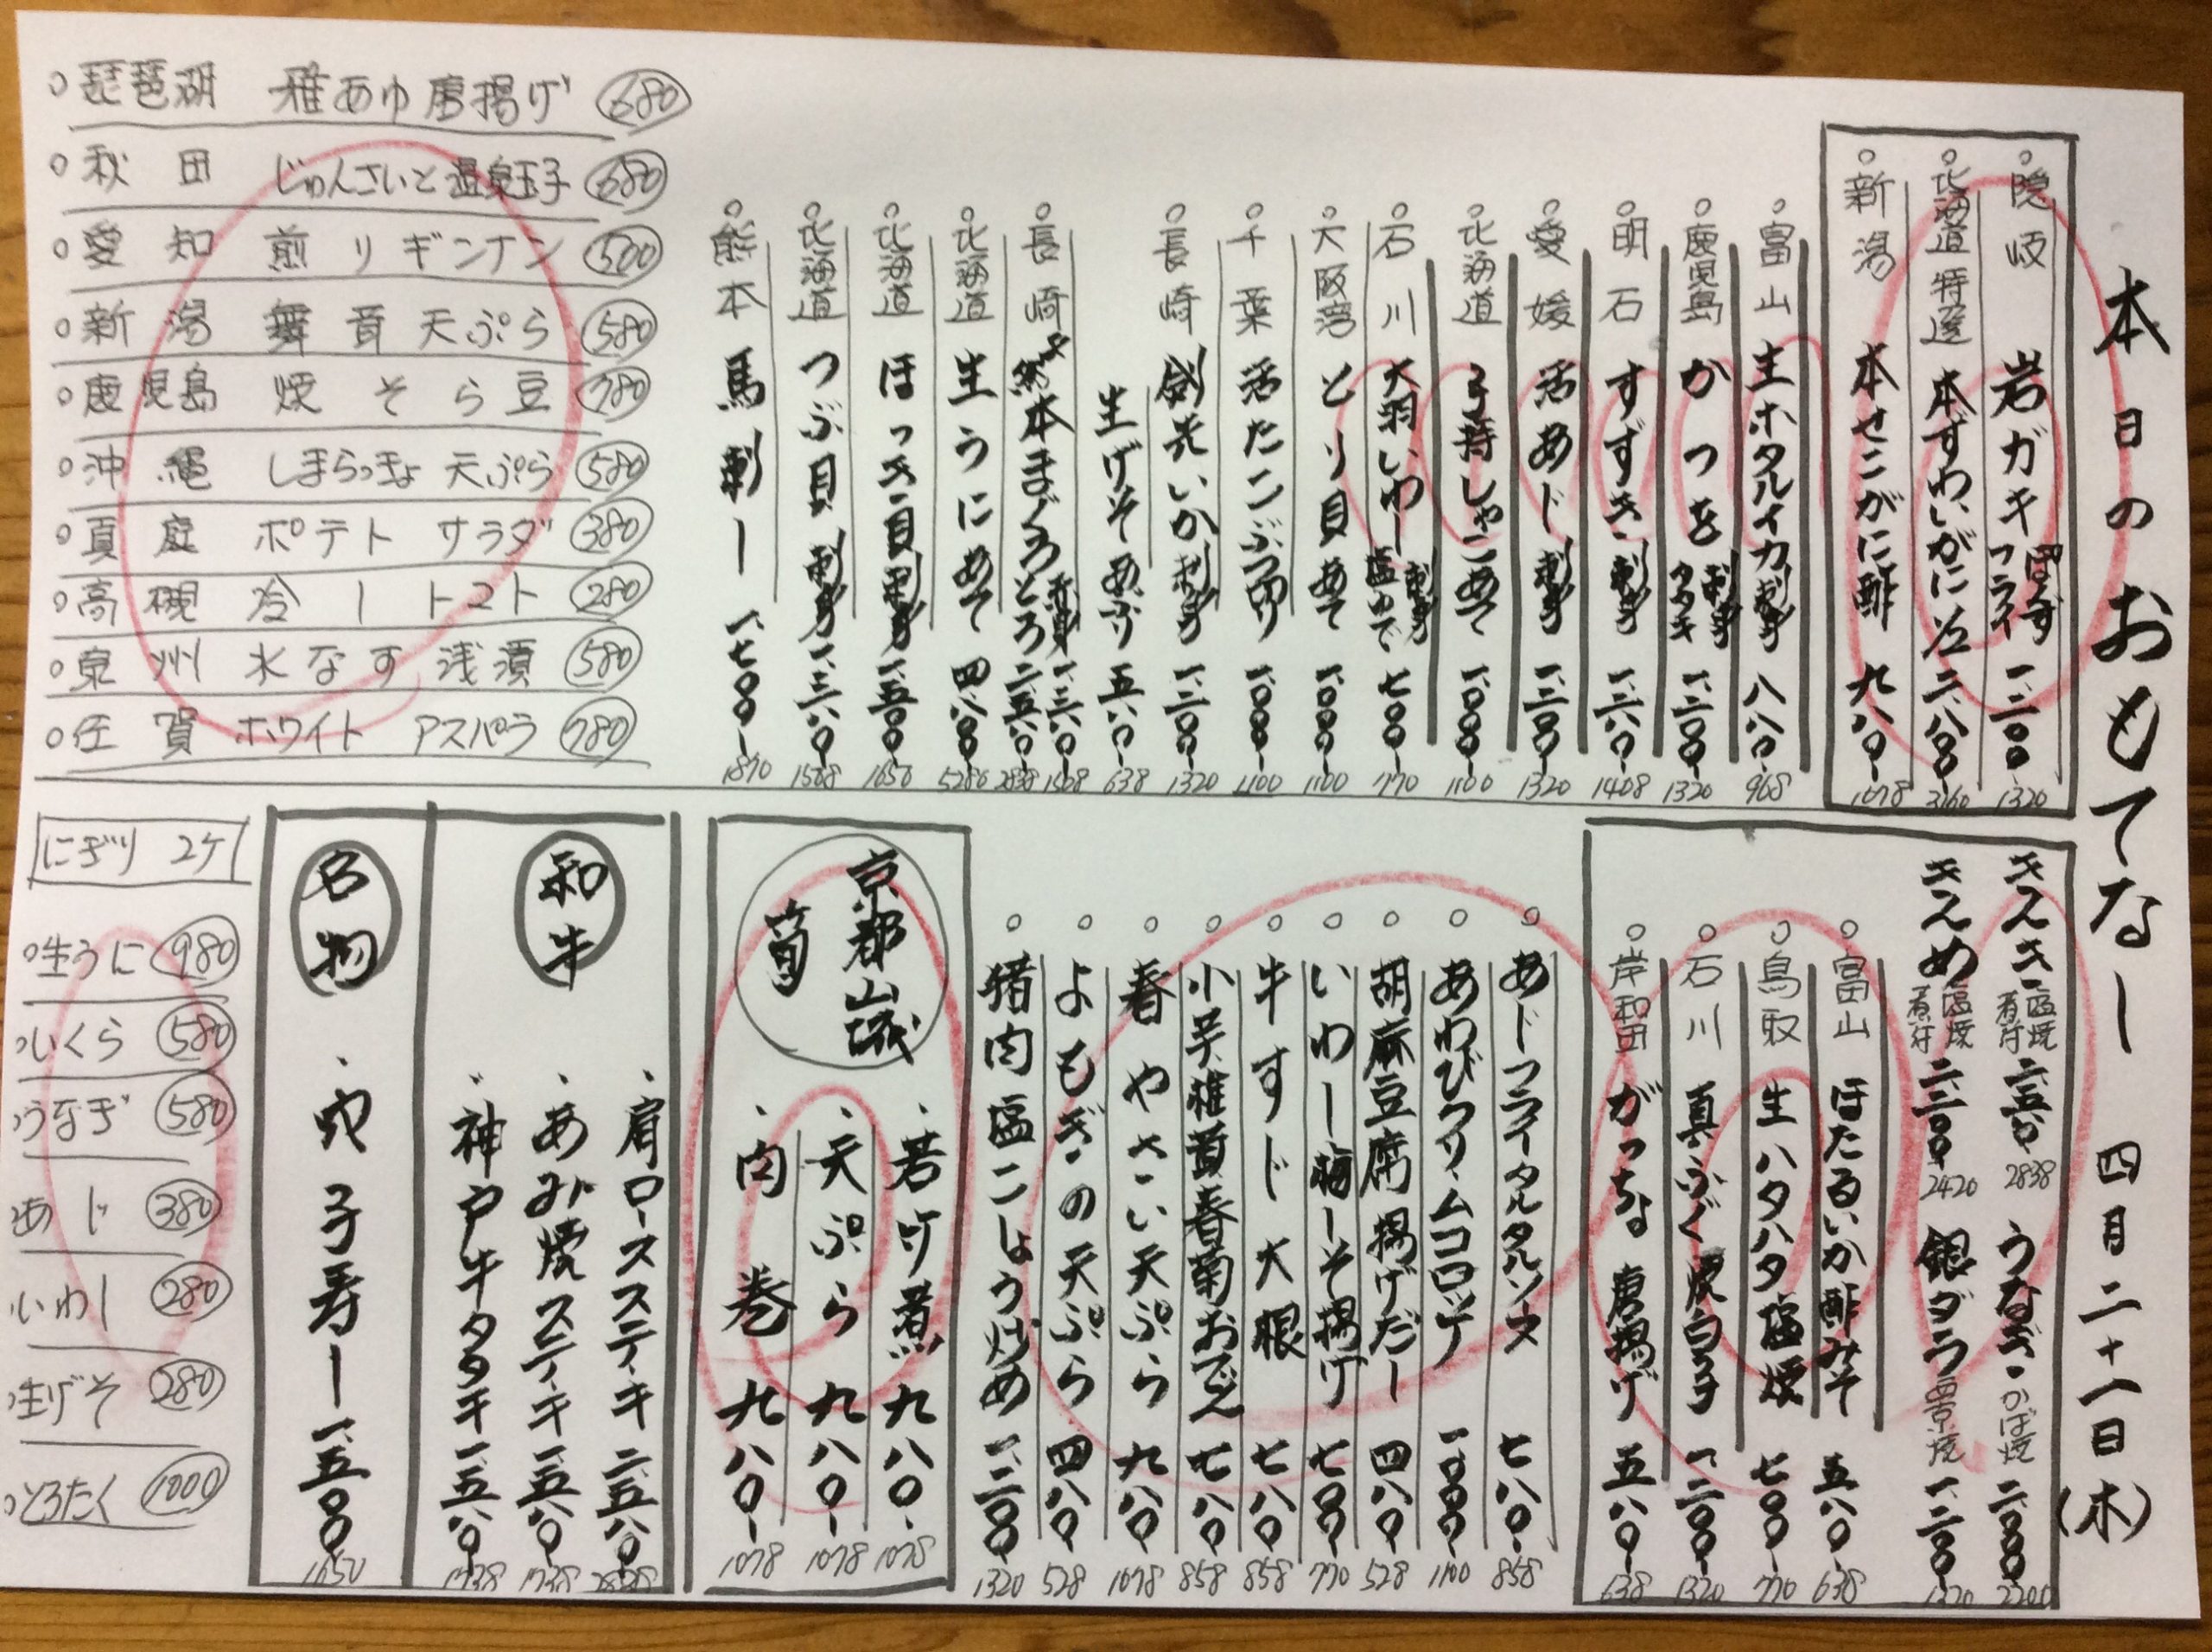 本日のおもてなし 四月二十一日(木)
隠岐 岩ガキ ぽんず フライ 一、二〇〇 1320
北海道 特選 本ずわいがに 二、八八〇
新潟 本せこがに酢 九八〇 1078
富山 生ホタルイカ刺身 八八〇 968
鹿児島 かつを 刺身 タタキ 一、二〇〇 1320
明石 すずき 刺身 一、二八〇 1408
愛媛 活あじ 刺身 一、二〇〇 1320
北海道 子持しゃこあて 一、〇〇〇 1100
石川 大羽いわし 刺身 塩ゆで 七〇〇 770
大阪湾 とり貝あて 一、〇〇〇 1100
千葉 活たこぶつ切り 一、〇〇〇 1100
長崎 剣先いか刺身 一、二〇〇 1320
生げそあぶり 五八〇 638
長崎 本まぐろ 赤身 一、三八〇 とろ 二、五八〇 2838
北海道 生うにあて 四、八〇〇 5280
北海道 ほっき貝 刺身 一、五〇〇 1650
北海道 つぶ貝 刺身 一、三八〇
熊本 馬刺し 一、七〇〇 1870
琵琶湖 稚あゆ唐揚げ 680
秋田 じゅんさいと温泉玉子 680
愛知 煎りギンナン 500
新潟 舞茸天ぷら 580
鹿児島 焼そら豆 780
沖縄 しまらっきょ 天ぷら 580
真庭 ポテトサラダ 380
高槻 冷しトマト 280
泉州 水なす浅漬 580
佐賀 ホワイトアスパラ 780
きんき 塩焼 煮付 二、五八〇 2838 うなぎ かば焼 二、〇〇〇 2200
きんめ 塩焼 煮付 二、二〇〇 2420 銀ダラ 西京焼 一、二〇〇 1320
富山 ほたるいか酢みそ 五八〇 638
鳥取 生ハタハタ塩焼 七〇〇 770
石川 真ふぐ 焼白子 一、二〇〇 1320
岸和田 がっちょ 唐揚げ 五八〇 638
あじフライタルタルソース 七八〇 858
あわびクリームコロッケ 一、〇〇〇 1100
胡麻豆腐 揚げだし 四八〇 528
いわし梅しそ揚げ 七〇〇 770
牛すじ大根 七八〇 858
小芋雅茸春菊おでん 七八〇 858
春やさい天ぷら 九八〇 1078
よもぎの天ぷら 四八〇 528
猪肉塩こしょう炒め 一、二〇〇 1320
京都山城
筍
若竹煮 九八〇 1078
天ぷら 九八〇 1078
肉巻 九八〇 1078
和牛
肩ロースステーキ 二、五八〇
あみ焼ステーキ 一、五八〇 1738
神戸牛タタキ 一、五八〇 1738
名物
穴子寿し 一、五〇〇 1650
にぎり 2ケ
生うに 980
いくら 580
うなぎ 580
あじ 380
いわし 280
生げそ 280
とろたく 1000